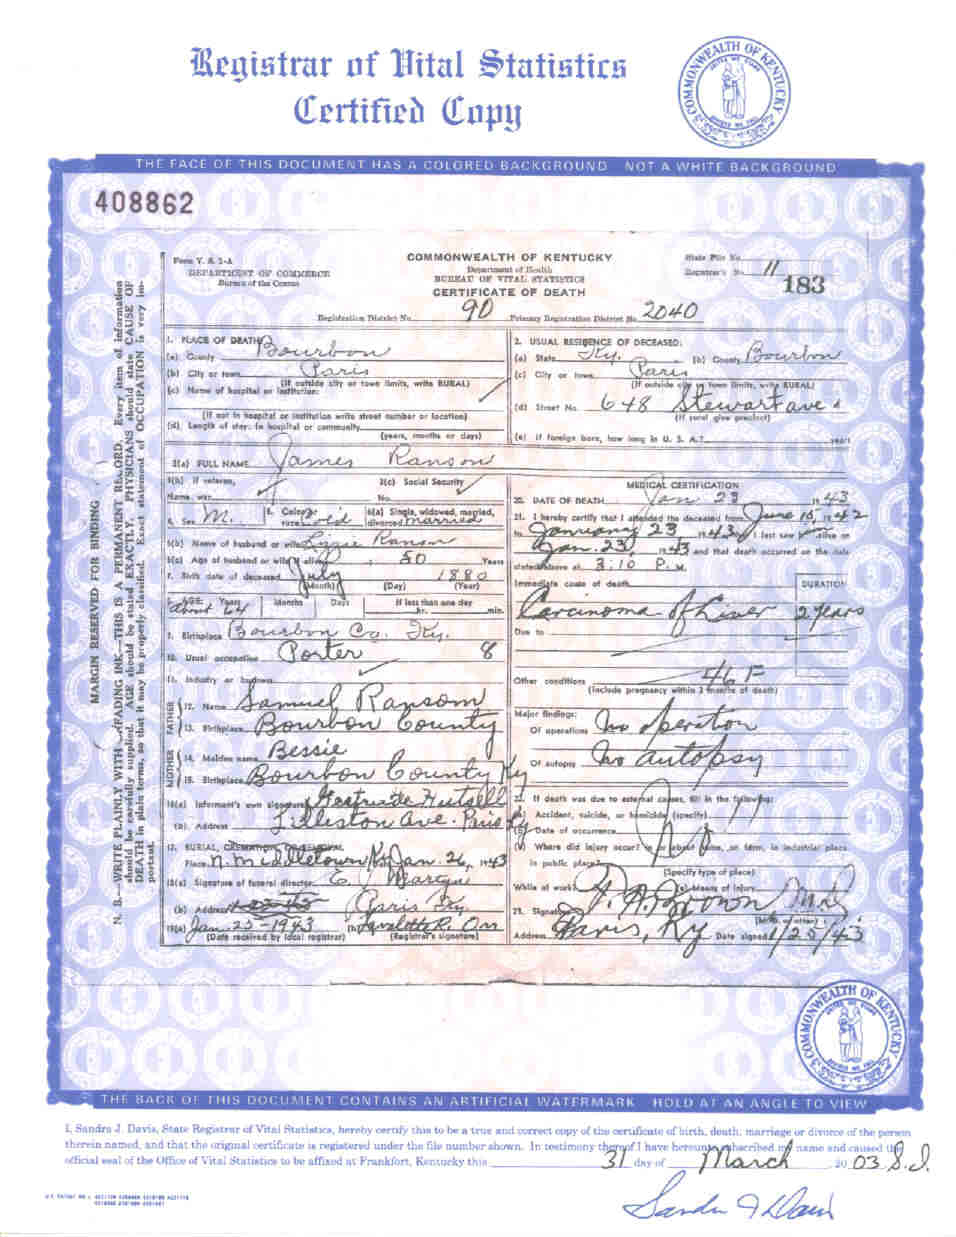 Registrar of Vital Statistics
Certified Copy
COMMONWEALTH OF KENTUCKY
THE FACE OF THIS DOCUMENT HAS A COLORED BACKGROUND NOT A WHITE BACKGROUND
408862
Form V. S. 1-A
DEPARTMENT OF COMMERCE
Bureau of the Census
COMMONWEALTH OF KENTUCKY
Department of Health
BUREAU OF VITAL STATISTICS
CERTIFICATE OF DEATH
State File No.
Registrar's No. 11
183
Registration District No. 90 Primary Registration District No. 2040
MARGIN RESERVED FOR BINDING
N. B.—WRITE PLAINLY WITH UNFADING INK—THIS IS A PERMANENT RECORD. Every item of information
should be carefully supplied. AGE should be stated EXACTLY. PHYSICIANS should state CAUSE OF
DEATH in plain terms, so that it may be properly classified. Exact statement of OCCUPATION is very im-
portant.
1. PLACE OF DEATH
(a) County Bourbon
(b) City or town Paris
(If outside city or town limits, write RURAL)
(c) Name of hospital or institution:
(If not in hospital or institution write street number or location)
(d) Length of stay: In hospital or community
(years, months or days)
2. USUAL RESIDENCE OF DECEASED:
(a) State Ky. (b) County Bourbon
(c) City or town Paris
(If outside city or town limits, write RURAL)
(d) Street No. 648 Stewart ave.
(If rural give precinct)
(e) If foreign born, how long in U. S. A.? years
3(a) FULL NAME James Ranson
3(b) If veteran,
Name war
3(c) Social Security
No.
4. Sex M. 5. Color or race Col'd 6(a) Single, widowed, married, divorced married
6(b) Name of husband or wife Lizzie Ranson
6(c) Age of husband or wife if alive 50 Years
7. Birth date of deceased July 1880
(Month) (Day) (Year)
8. AGE: Years Months Days If less than one day
about 64 hr. min.
9. Birthplace Bourbon Co. Ky.
10. Usual occupation Porter 8
11. Industry or business
FATHER
12. Name Samuel Ransom
13. Birthplace Bourbon County
MOTHER
14. Maiden name Bessie
15. Birthplace Bourbon County Ky
16(a) Informant's own signature Gertrude Hutsell
(b) Address Lilliston Ave. Paris Ky
17. BURIAL, CREMATION, OR REMOVAL
Place N. Middletown Ky Jan. 26, 1943
18(a) Signature of funeral director
(b) Address Paris Ky
19(a) Jan. 25-1943
(Date received by local registrar) (Registrar's signature)
MEDICAL CERTIFICATION
20. DATE OF DEATH Jan 23 1943
21. I hereby certify that I attended the deceased from June 15, 1942
to January 23 1943, I last saw alive on
Jan. 23, 1943 and that death occurred on the date
stated above at 3:10 P. M.
Immediate cause of death DURATION
Carcinoma of Liver 2 years
Due to
Other conditions 46 F
(Include pregnancy within 3 months of death)
Major findings:
Of operations No operation
Of autopsy No autopsy
22. If death was due to external causes, fill in the following:
(a) Accident, suicide, or homicide (specify) No
(b) Date of occurrence
(c) Where did injury occur? in or about home, on farm, in industrial place
in public place?
(Specify type of place)
While at work? (e) Means of injury
23. Signature Brown M.D.
(M.D. or other)
Address Paris, Ky Date signed 1/25/43
COMMONWEALTH OF KENTUCKY
THE BACK OF THIS DOCUMENT CONTAINS AN ARTIFICIAL WATERMARK HOLD AT AN ANGLE TO VIEW
I, Sandra J. Davis, State Registrar of Vital Statistics, hereby certify this to be a true and correct copy of the certificate of birth, death, marriage or divorce of the person
therein named, and that the original certificate is registered under the file number shown. In testimony thereof I have hereunto subscribed my name and caused the
official seal of the Office of Vital Statistics to be affixed at Frankfort, Kentucky this 31 day of March, 20 03 S.J.
Sandra J Davis